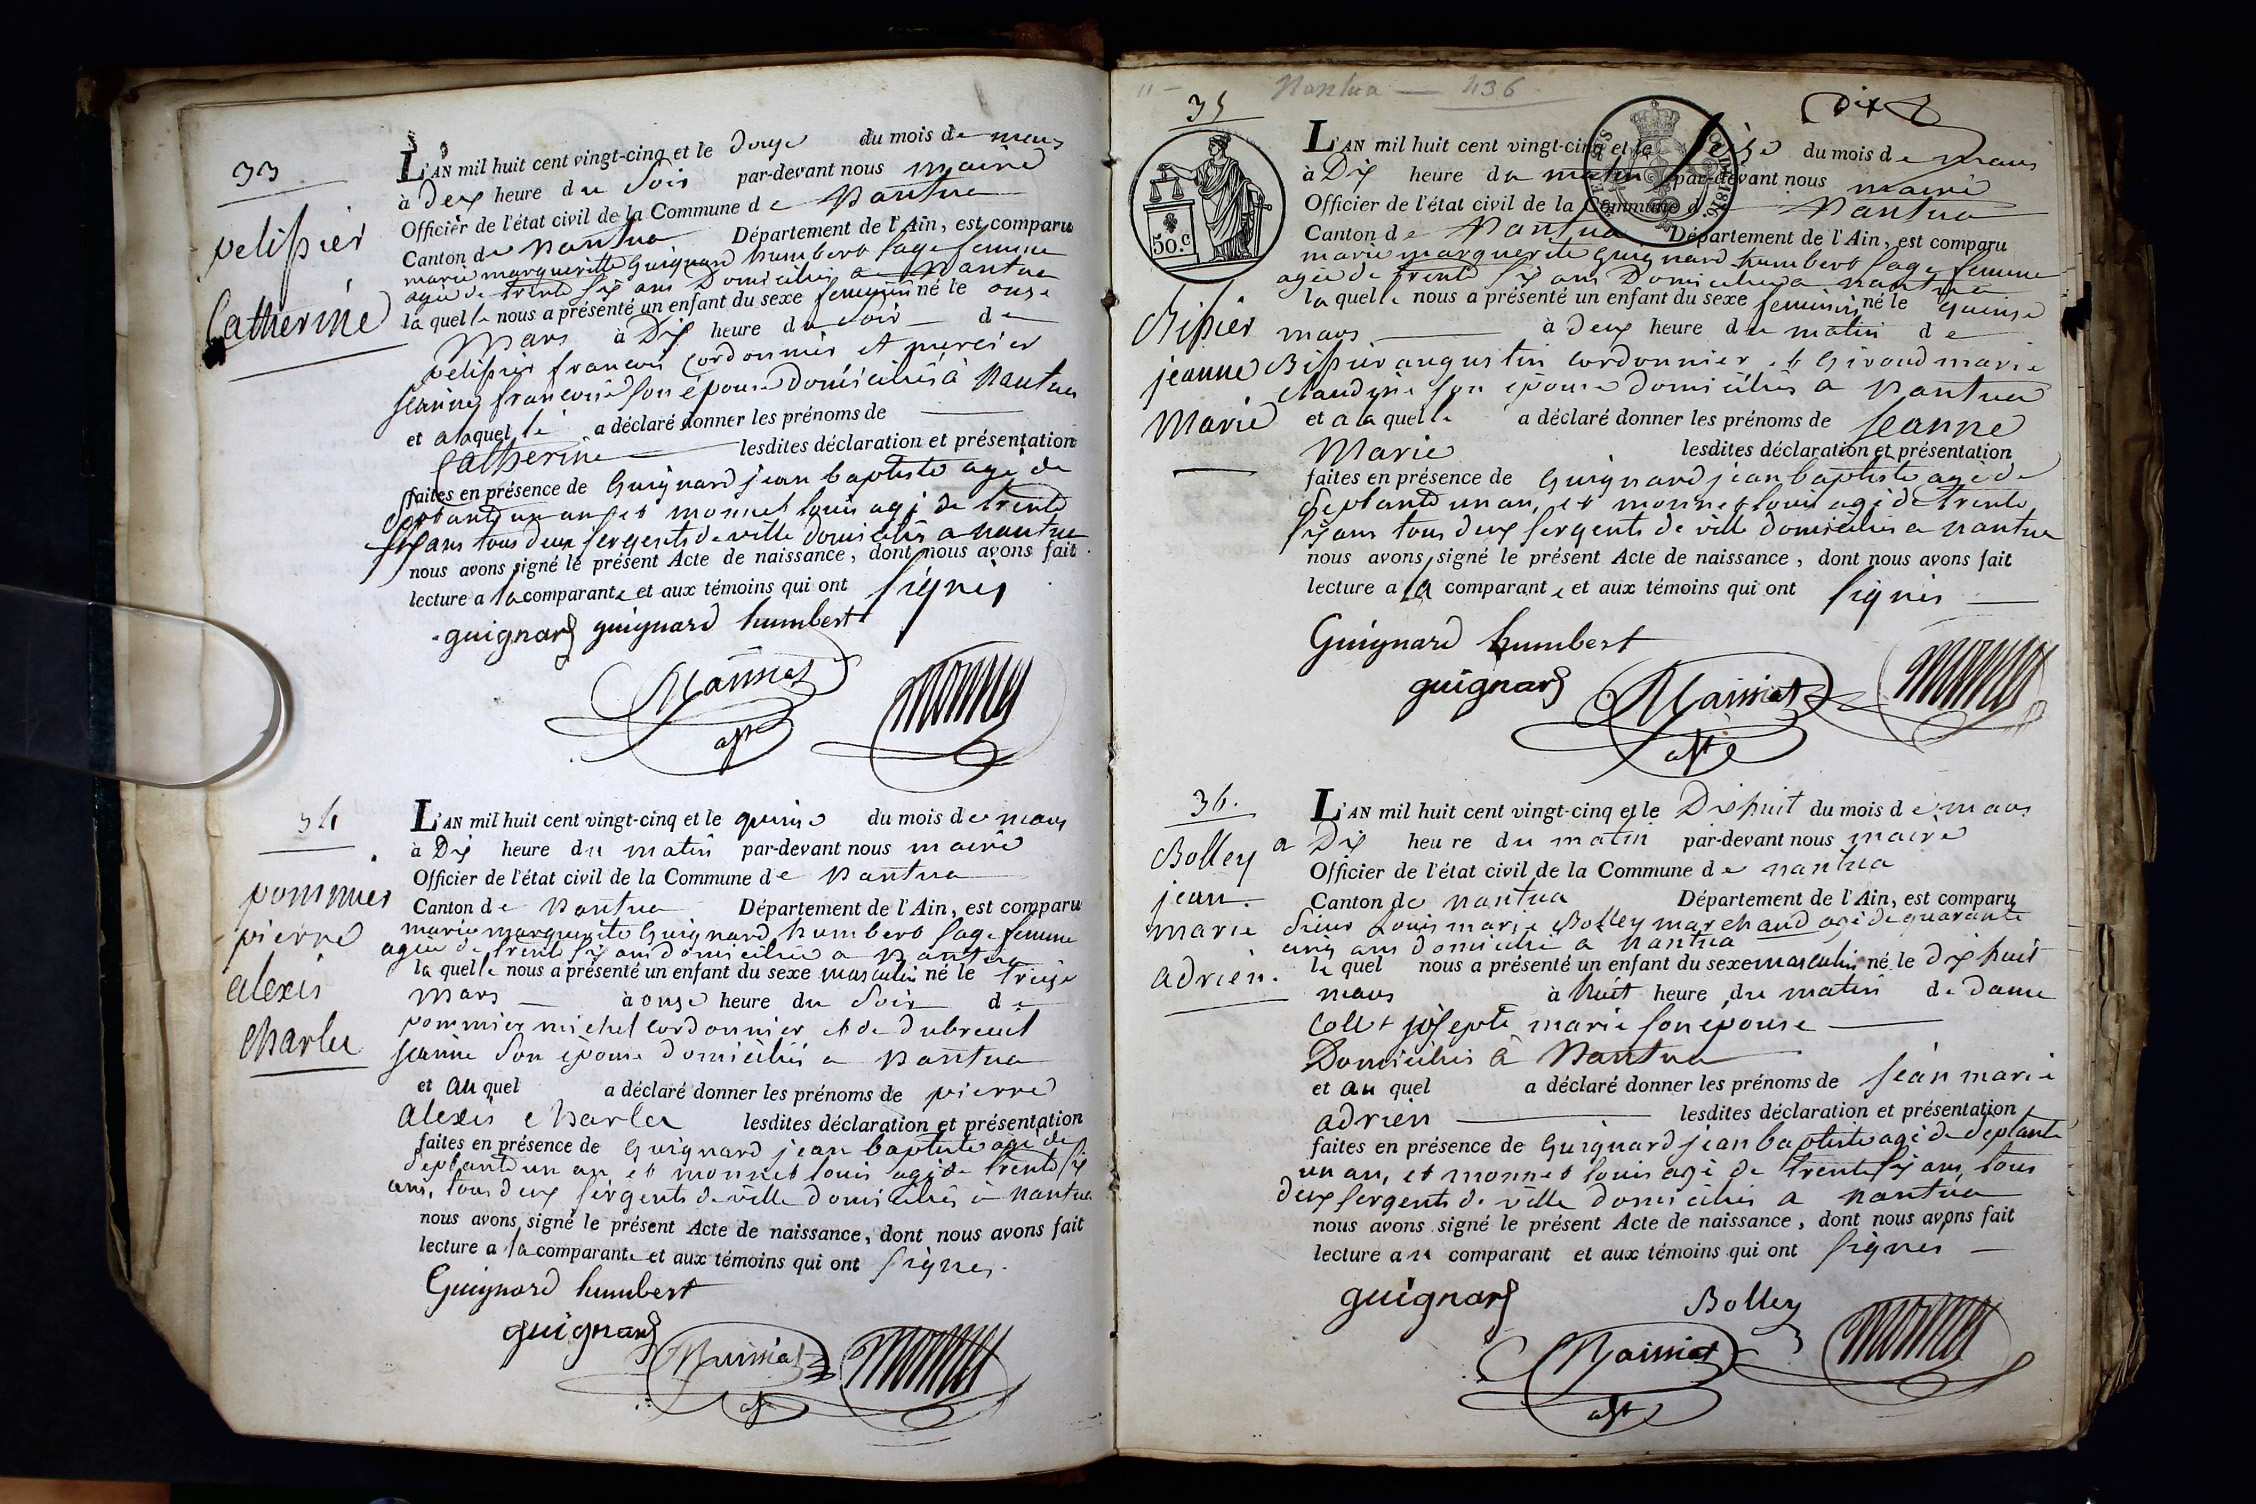 33
pelissier
Catherine
L'AN mil huit cent vingt-cinq et le douze du mois de mars
à deux heure du soir par-devant nous maire
Officier de l'état civil de la Commune de Nantua
Canton de Nantua Département de l'Ain, est comparu
marie margueritte Guignard humbert sage femme
agée de trente six ans Domiciliée a Nantua
la quelle nous a présenté un enfant du sexe feminin né le onze
Mars à Dix heure du soir de
pelissier francois Cordonnier et mercier
jeanne francoise son épouse Domiciliés à Nantua
et a laquelle a déclaré donner les prénoms de
Catherine lesdites déclaration et présentation
faites en présence de Guignard jean baptiste agé de
septante un an et monnet louis agé de trente
six ans tous deux sergents de ville domiciliés a nantua
nous avons signé le présent Acte de naissance, dont nous avons fait
lecture a la comparante et aux témoins qui ont signés
guignard guignard humbert
monnet
34
pommier
pierre
alexis
charles
L'AN mil huit cent vingt-cinq et le quinze du mois de mars
à Dix heure du matin par-devant nous maire
Officier de l'état civil de la Commune de Nantua
Canton de Nantua Département de l'Ain, est comparu
marie marguerite Guignard humbert sage femme
agée de trente six ans domiciliée a Nantua
la quelle nous a présenté un enfant du sexe masculin né le treize
mars à onze heure du soir de
pommier michel cordonnier et de dubreuil
jeanne son épouse domiciliés a Nantua
et au quel a déclaré donner les prénoms de pierre
alexis charles lesdites déclaration et présentation
faites en présence de Guignard jean baptiste agé de
septante un an et monnet louis agé de trente six
ans, tous deux sergents de ville domiciliés à nantua
nous avons signé le présent Acte de naissance, dont nous avons fait
lecture a la comparante et aux témoins qui ont signés.
Guignard humbert
guignard
monnet
Nantua — 436
35
Dix
50.c
1816.
Bissier
jeanne
Marie
L'AN mil huit cent vingt-cinq et le seize du mois de mars
à Dix heure du matin par-devant nous maire
Officier de l'état civil de la Commune de Nantua
Canton de Nantua Département de l'Ain, est comparu
marie marguerite Guignard humbert sage femme
agée de trente six ans Domiciliée a nantua
la quelle nous a présenté un enfant du sexe feminin né le quinze
mars à deux heure du matin de
Bissier augustin cordonnier et Giroud marie
claudine son épouse domiciliés a Nantua
et a la quelle a déclaré donner les prénoms de jeanne
Marie lesdites déclaration et présentation
faites en présence de Guignard jean baptiste agé de
septante un an, et monnet louis agé de trente
six ans tous deux sergents de ville domiciliés a nantua
nous avons signé le présent Acte de naissance, dont nous avons fait
lecture a la comparante et aux témoins qui ont signés
Guignard humbert
guignard
monnet
36.
Bolley
jean.
marie
adrien.
L'AN mil huit cent vingt-cinq et le Dixhuit du mois de mars
a Dix heure du matin par-devant nous maire
Officier de l'état civil de la Commune de nantua
Canton de nantua Département de l'Ain, est comparu
sieur Louis marie Bolley marchand agé de quarante
cinq ans domicilié a Nantua
le quel nous a présenté un enfant du sexe masculin né le dix huit
mars à huit heure du matin de dame
Collet josepte marie son épouse
Domiciliés à Nantua
et au quel a déclaré donner les prénoms de jean marie
adrien lesdites déclaration et présentation
faites en présence de Guignard jean baptiste agé de septante
un an, et monnet louis agé de trente six ans, tous
deux sergents de ville domiciliés a nantua
nous avons signé le présent Acte de naissance, dont nous avons fait
lecture au comparant et aux témoins qui ont signés
guignard Bolley
monnet